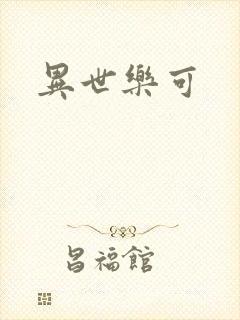 異世樂可
昌福館